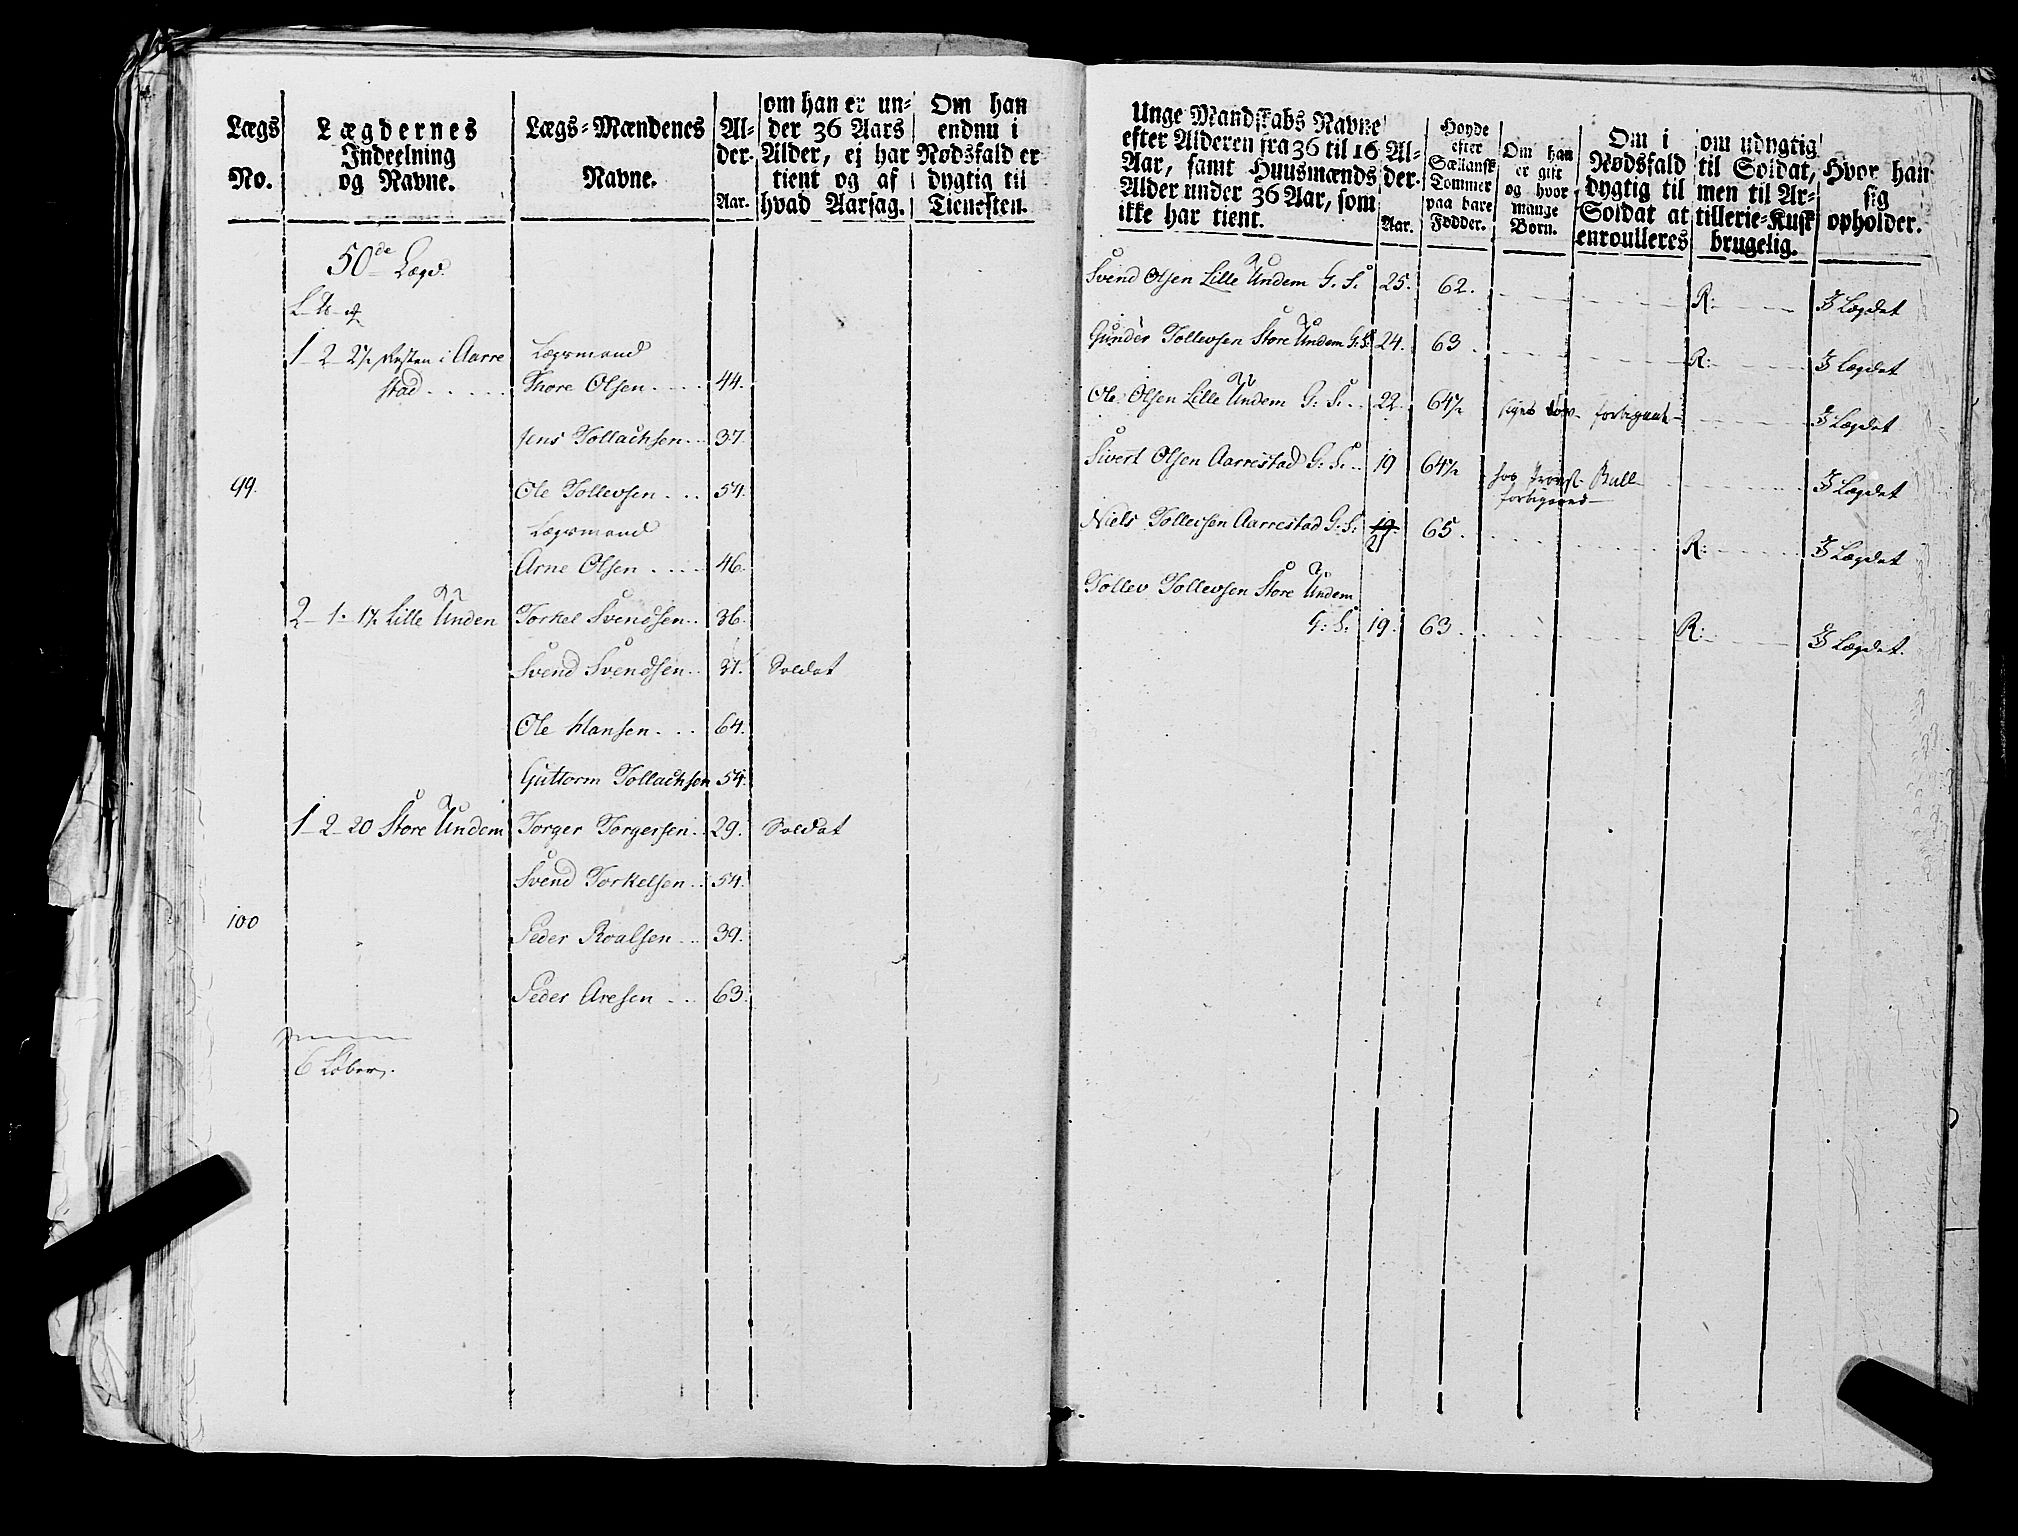 Lægs No.
Lægdernes Indeelning og Navne.
Lægs-Mændenes Navne.
Alder. Aar.
om han er under 36 Aars Alder, ej har tient og af hvad Aarsag.
Om han endnu i Nødsfald er dygtig til Tienesten.
50de Lægd.
1 - 2 - 2½ Resten i Aarre
stad . . . . .
Lægsmand
Thore Olsen . . . . 44.
Jens Tollachsen . . 37.
99. Ole Tollevsen . . . 54.
Lægsmand
Arne Olsen . . . . 46.
2 - 1 - 1½ Lille Unden Torkel Svendsen . . 36.
Svend Svendsen . . 31. Soldat
Ole Hansen . . . 64.
Guttorm Tollachsen 54.
1 - 2 - 20 Store Undem Torger Torgersen . . 29. Soldat
Svend Torkelsen . . 54.
100 Peder Roalsen . . 39.
Peder Aresen . . . 63.
6 Løber.
Unge Mandskabs Navne efter Alderen fra 36 til 16 Aar, samt Huusmænds Alder under 36 Aar, som ikke har tient.
Alder. Aar.
Høyde efter Sællansk Tommer paa bare Fødder.
Om han er gift og hvor mange Børn.
Om i Nødsfald dygtig til Soldat at enroulleres
om udygtig til Soldat, men til Artillerie-Kusk brugelig.
Hvor han sig opholder.
Svend Olsen Lille Undem G. S. 25. 62. R: I Lægdet
Gunder Tollevsen Store Undem G: S: 24. 63 R: I Lægdet
Ole Olsen Lille Undem G: S: . . 22. 64½ I Lægdet
Sivert Olsen Aarrestad G: S: . . 19 64½ hos Bull I Lægdet
Niels Tollevsen Aarrestad G: S: 19. 21 65. R: I Lægdet
Tollev Tollevsen Store Undem
G: S. 19. 63. R: I Lægdet.